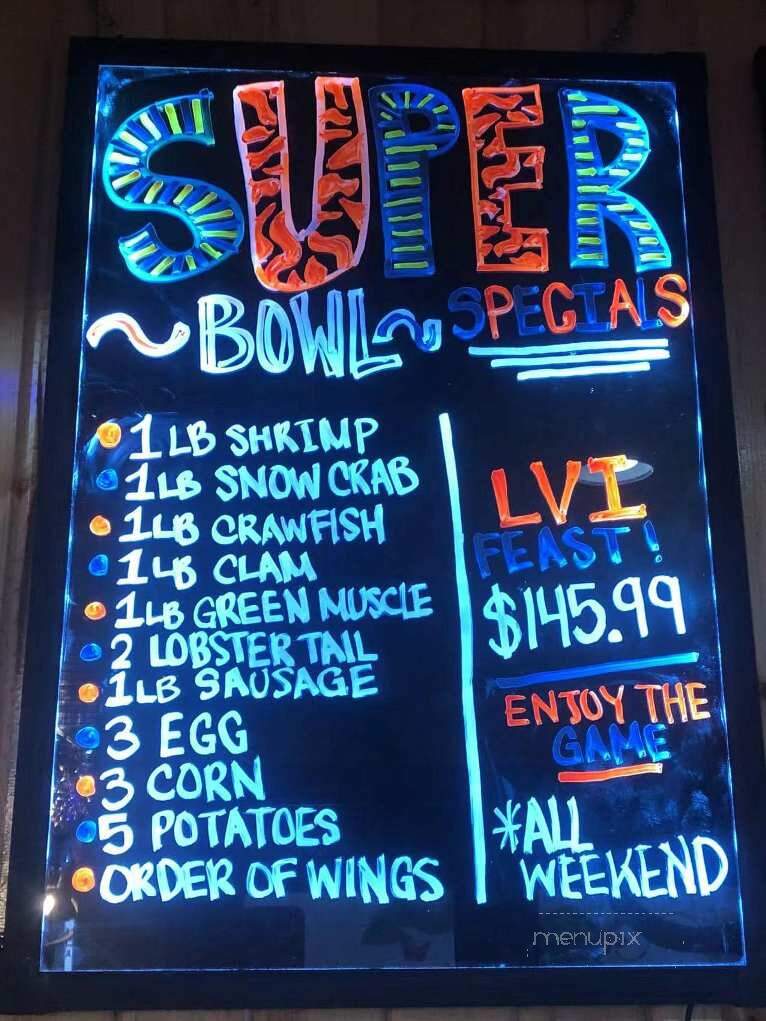 SUPER
~BOWL~ SPECIALS
1 LB SHRIMP
1LB SNOW CRAB
1LB CRAWFISH
1LB CLAM
1LB GREEN MUSCLE
2 LOBSTER TAIL
1LB SAUSAGE
3 EGG
3 CORN
5 POTATOES
ORDER OF WINGS
LVI
FEAST!
$145.99
ENJOY THE
GAME
*ALL
WEEKEND
menupix